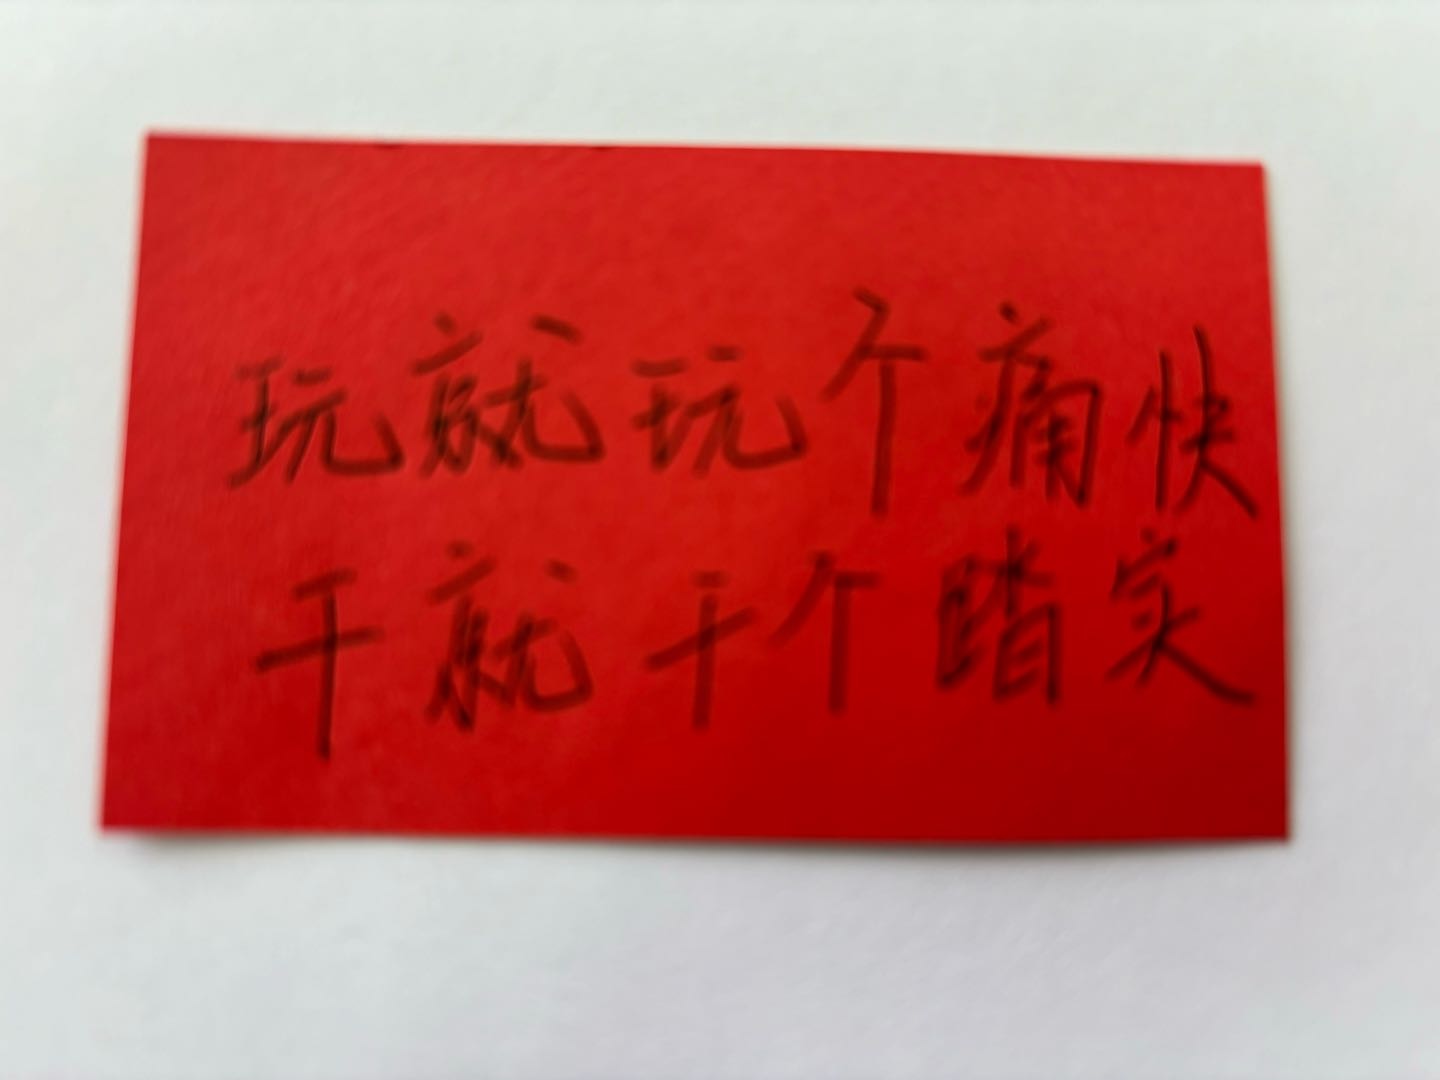 玩就玩个痛快
干就干个踏实